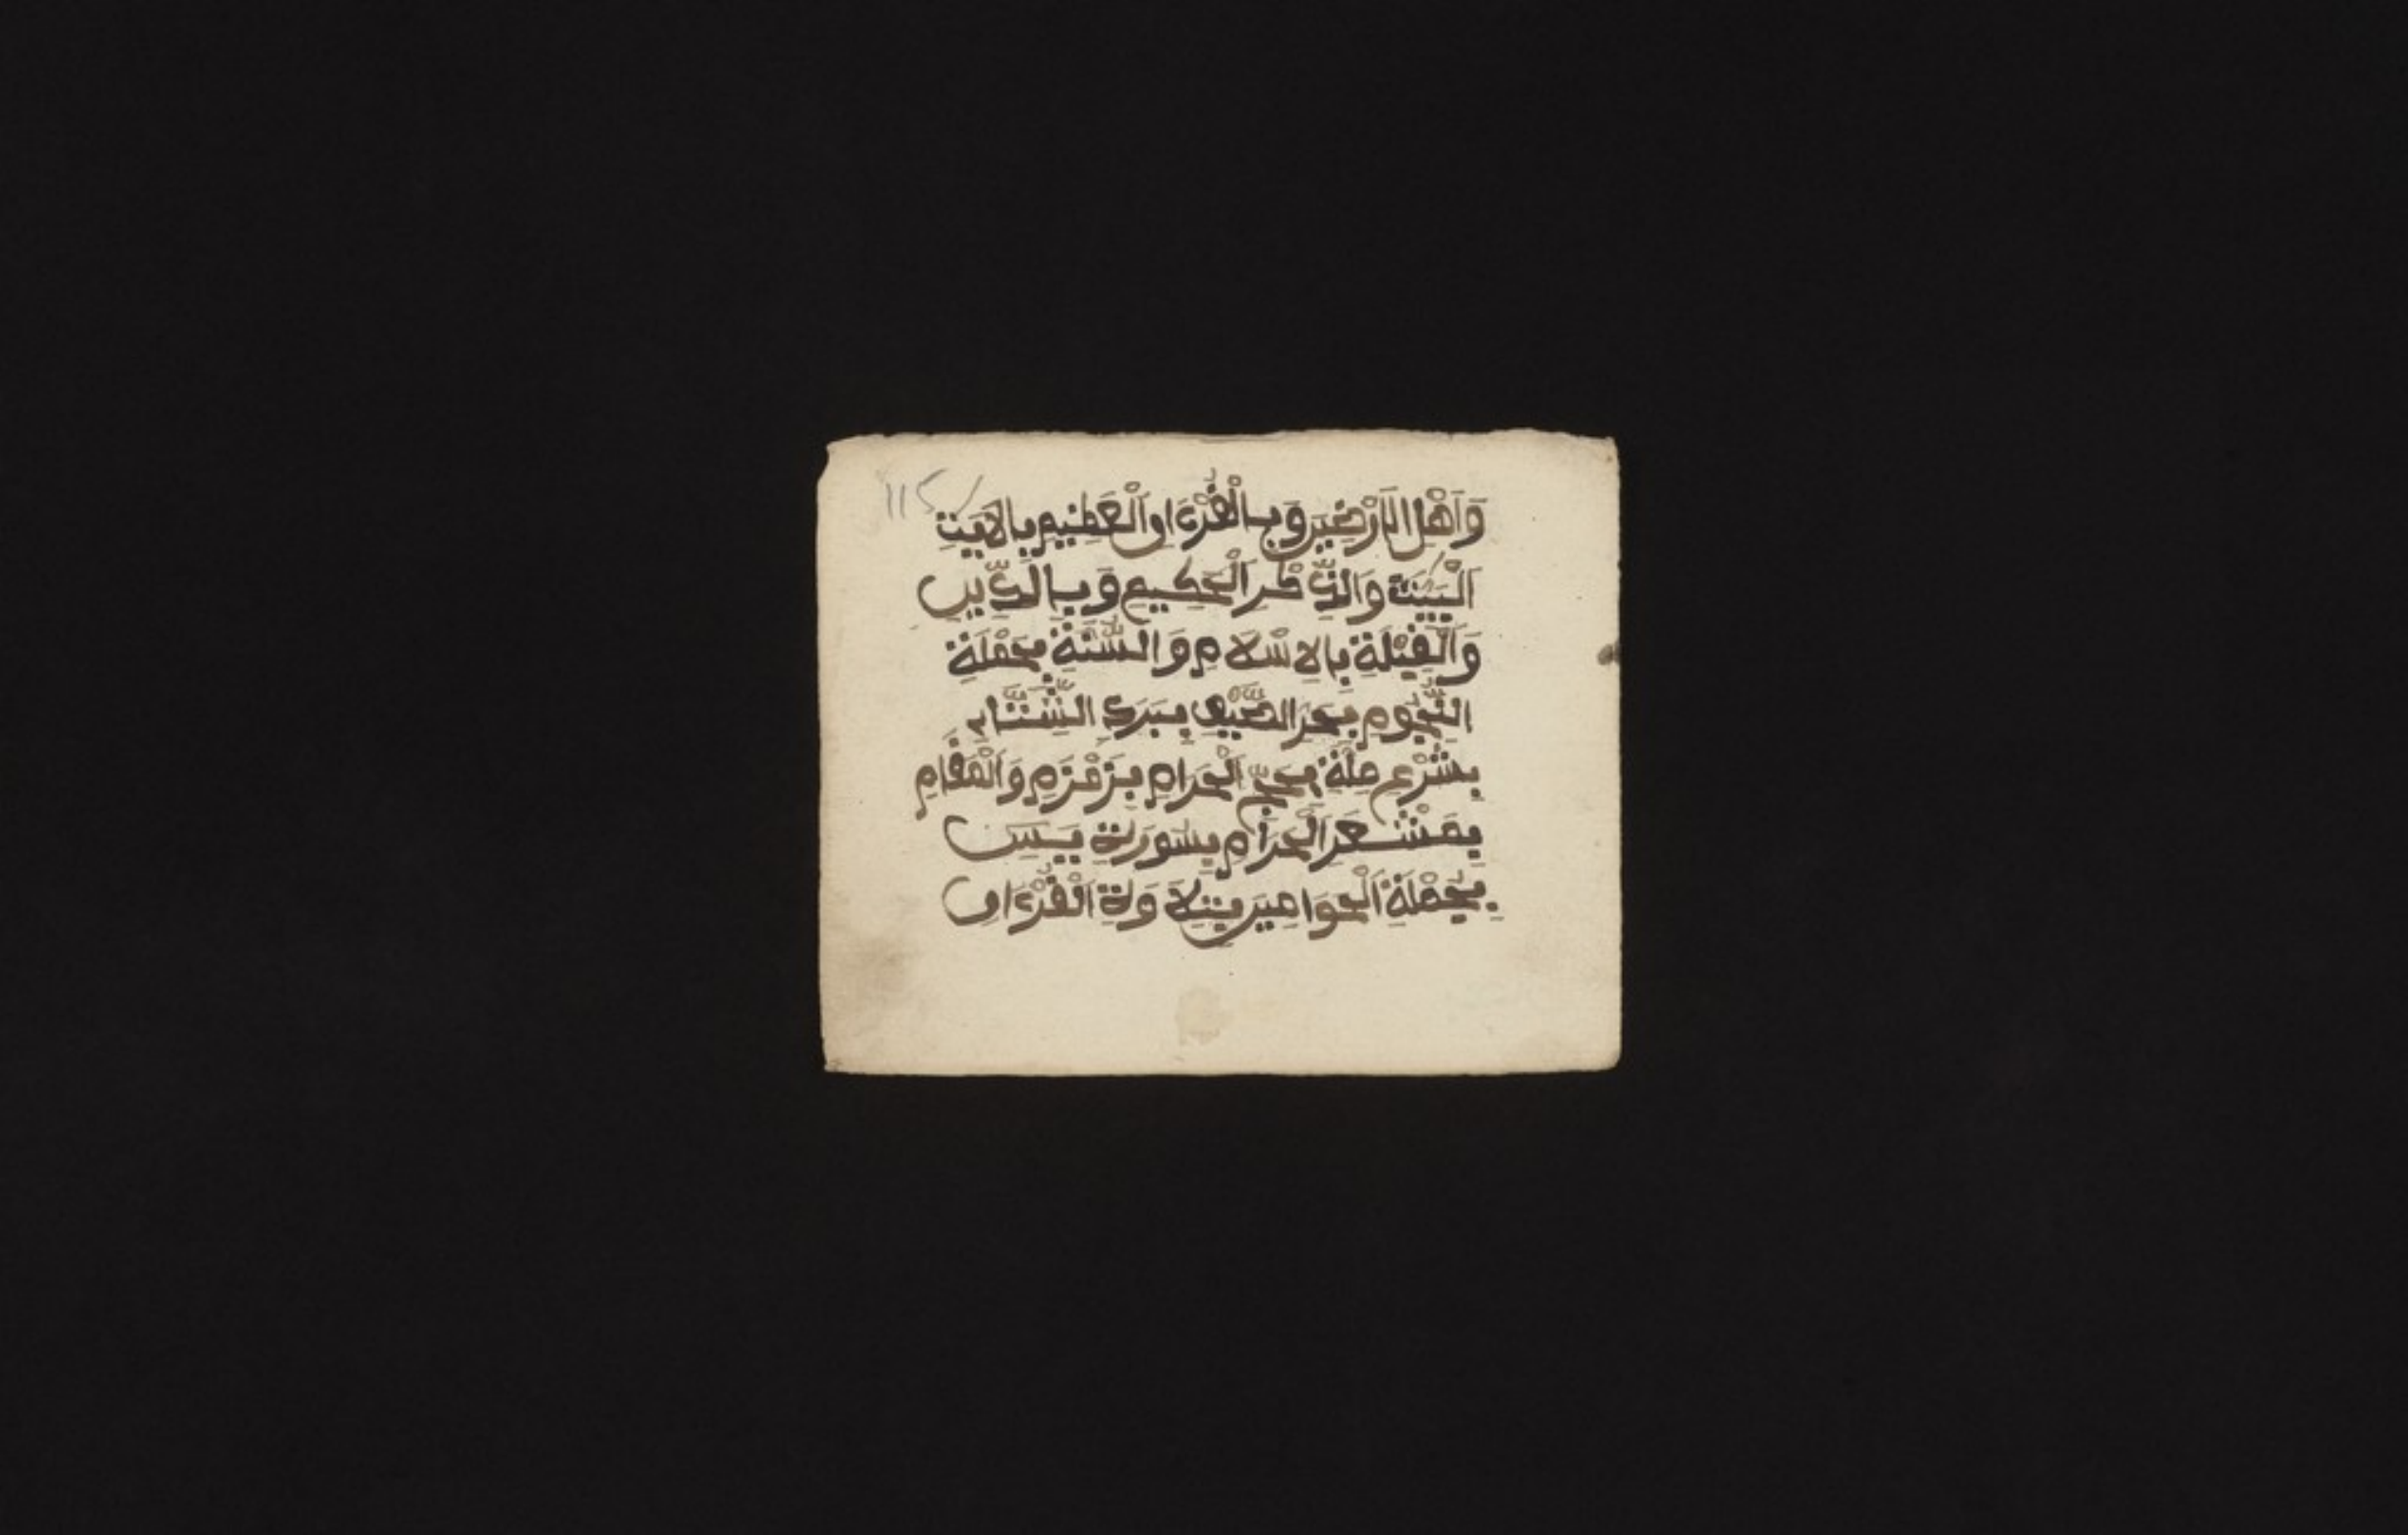 115
وَأَهْلِ الَارَضِينَ وَبِالْقُرْءَانِ الْعَظِيمِ بِالَايَتِ
الْبَيِّنَةِ وَالذِّكْرِ الْحَكِيمِ وَبِالدِّينِ
وَالْقِبْلَةِ بِالِاسْلَامِ وَالسُّنَّةِ بِجُمْلَةِ
النُّجُومِ بِحَرِّ الصَّيْفِ بِبَرَدِ الشِّتَاءِ
بِشَرْعِ مِلَّةِ بِحَجِّ الْحَرَامِ بِزَمْزَمِ وَالْمَقَامِ
بِمَشْعَرِ الْحَرَامِ بِسُورَةِ يَسِن
بِجُمْلَةِ الْحَوَامِيمَ بِتِلَاوَةِ الْقُرْءَانِ